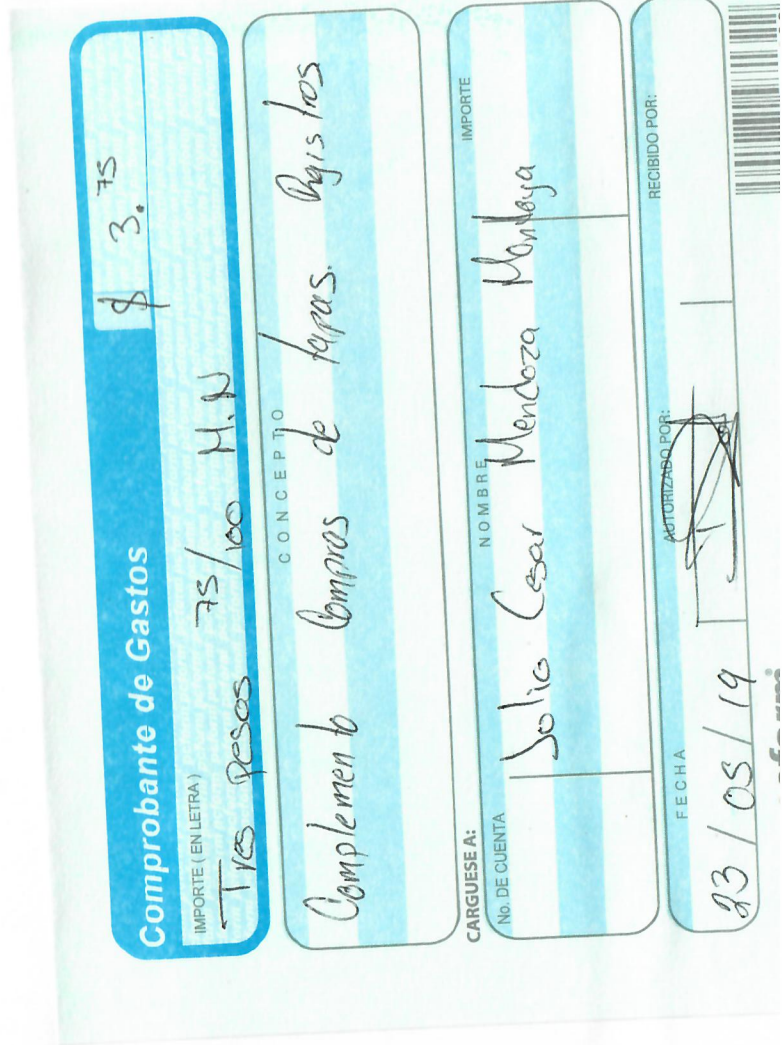 Comprobante de Gastos
$ 3.75
IMPORTE ( EN LETRA )
Tres pesos 75/100 M.N
CONCEPTO
Complemento Compras de tapas. Registros.
CARGUESE A:
No. DE CUENTA NOMBRE IMPORTE
Julio Cesar Mendoza Montoya
FECHA AUTORIZADO POR: RECIBIDO POR:
23/05/19